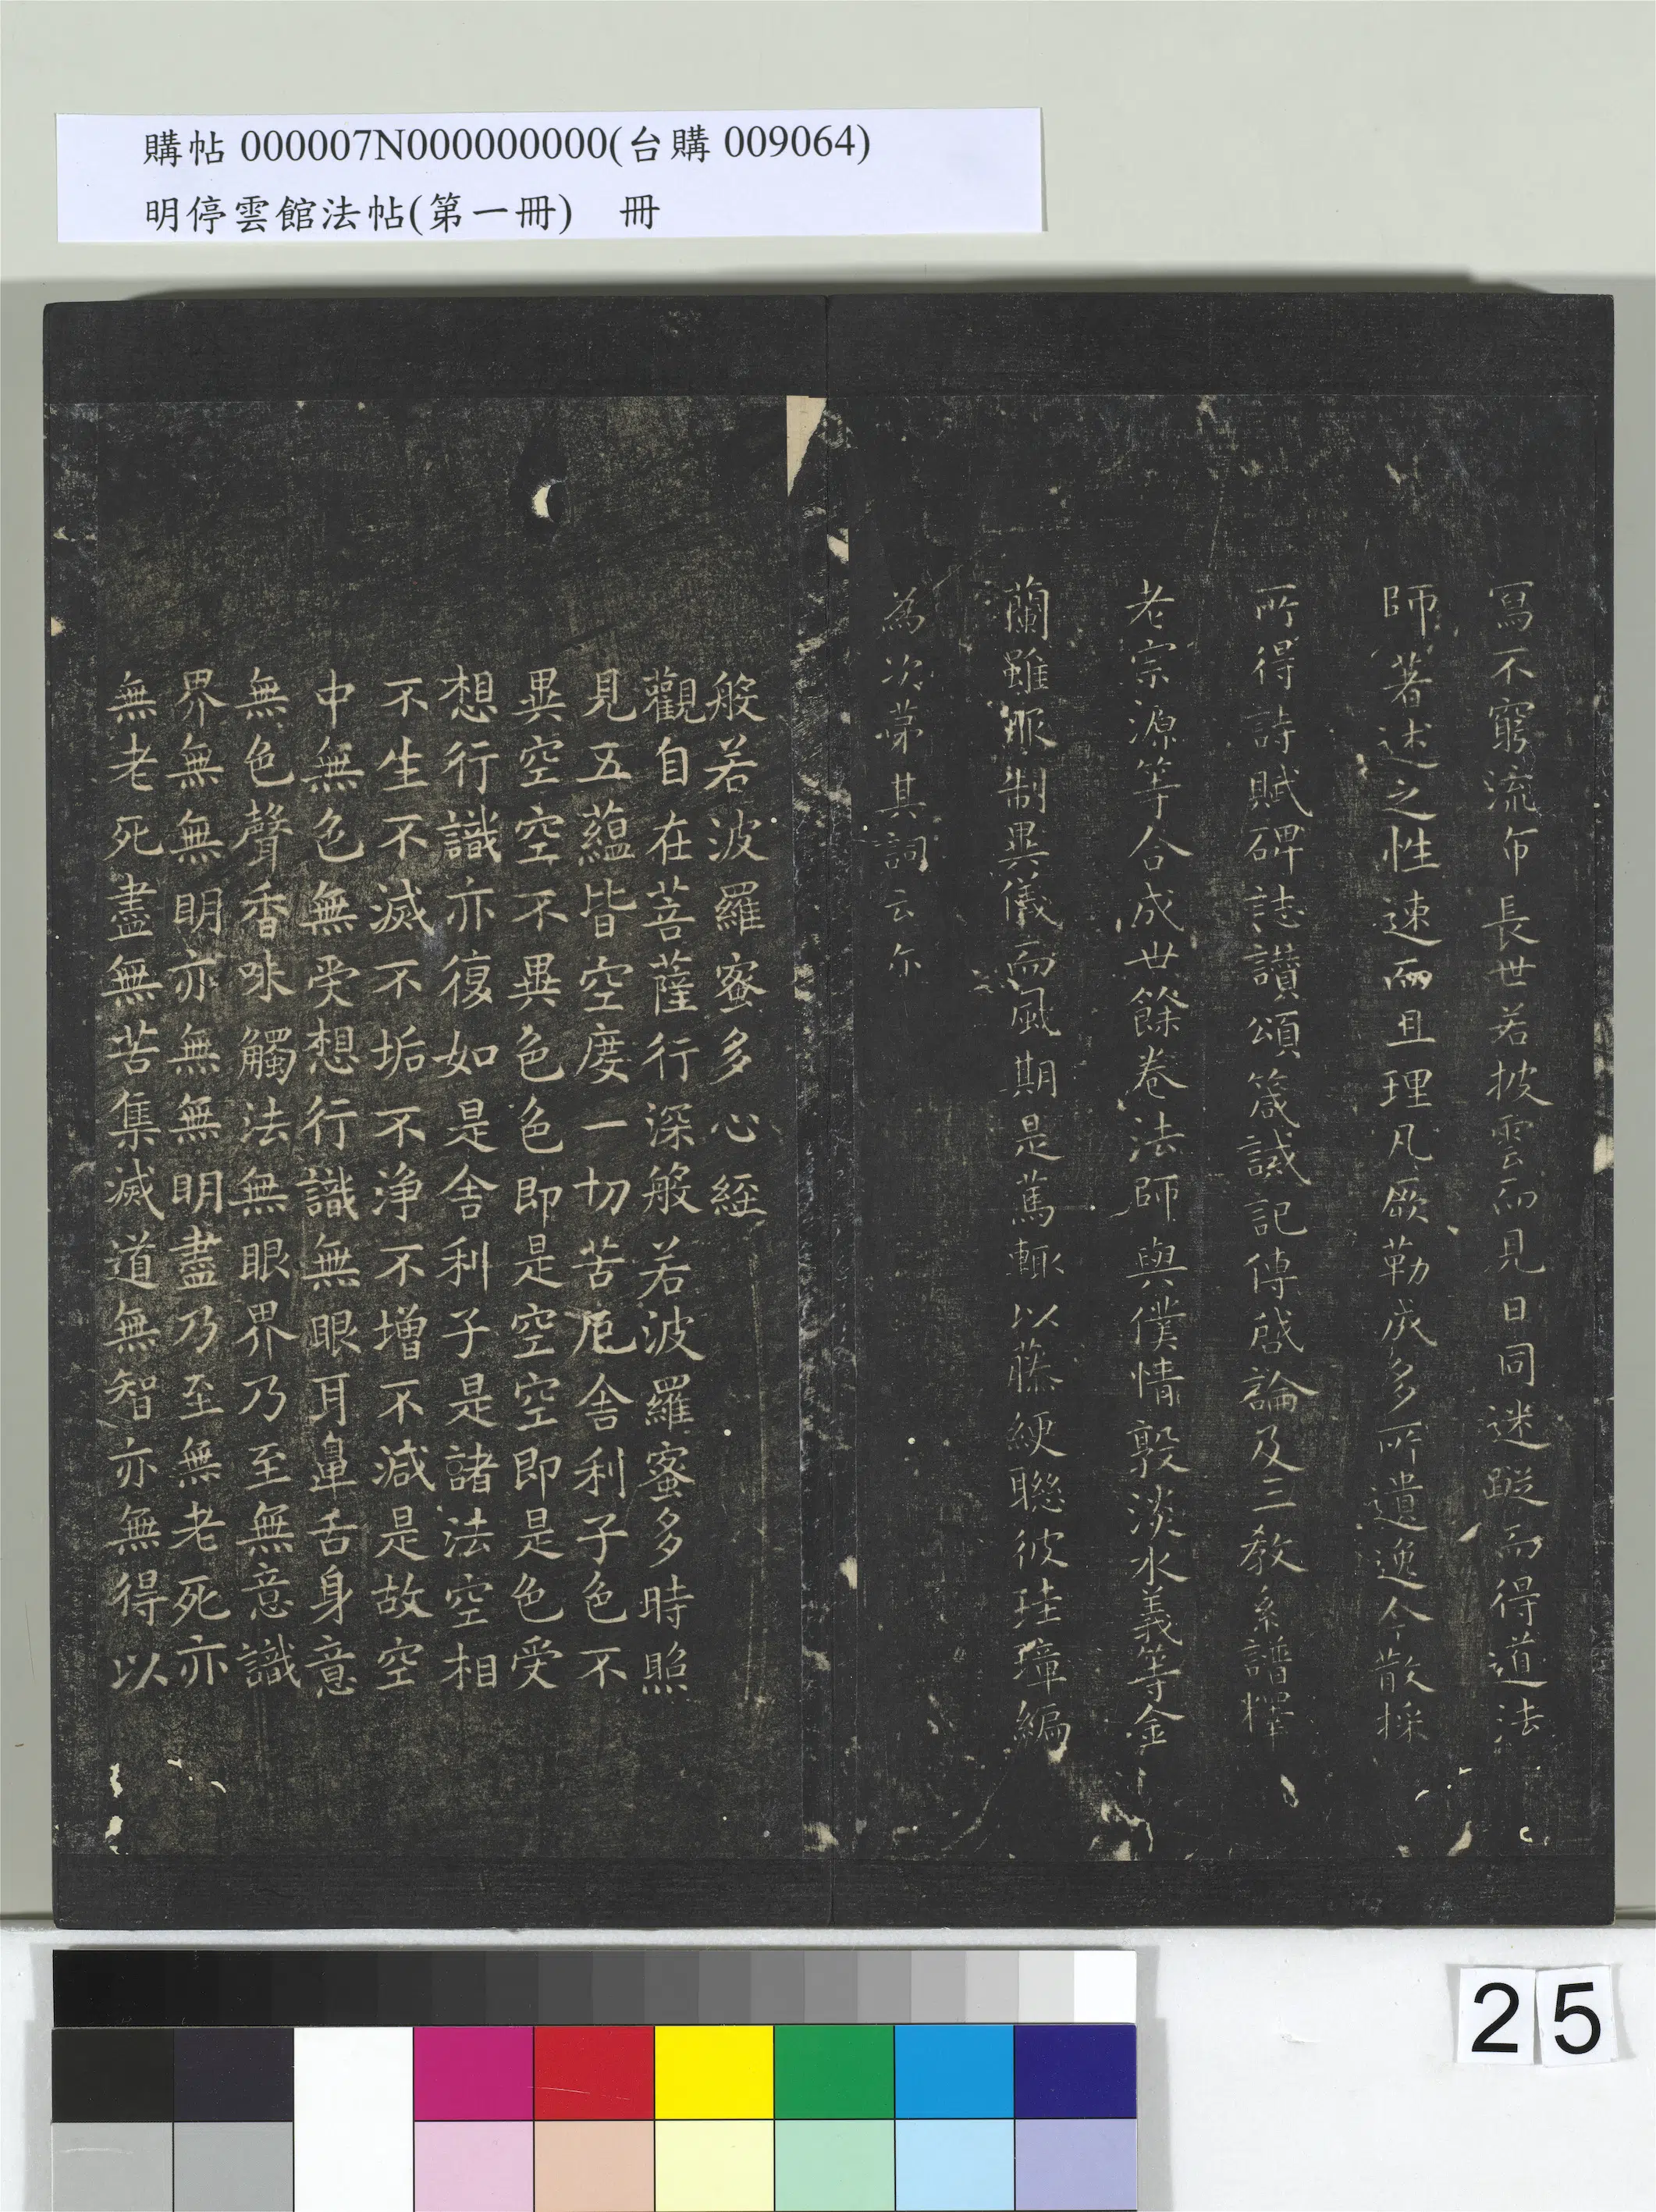 購帖000007N000000000(台購009064)
明停雲館法帖(第一冊)　冊
寫不窮流布長世若披雲而見日同迷蹤而得道法
師著述之性速而且理凡厥勒成多所遺逸今散採
所得詩賦碑誌讃頌箴誡記傳啓論及三教系譜釋
老宗源等合成廿餘卷法師與僕情敦淡水義等金
蘭雖服制異儀而風期是篤輒以藤綆聯彼珪璋編
為次苐其詞云尒
般若波羅蜜多心經
觀自在菩薩行深般若波羅蜜多時照
見五蘊皆空度一切苦厄舍利子色不
異空空不異色色即是空空即是色受
想行識亦復如是舍利子是諸法空相
不生不滅不垢不淨不增不減是故空
中無色無受想行識無眼耳鼻舌身意
無色聲香味觸法無眼界乃至無意識
界無無明亦無無明盡乃至無老死亦
無老死盡無苦集滅道無智亦無得以
25